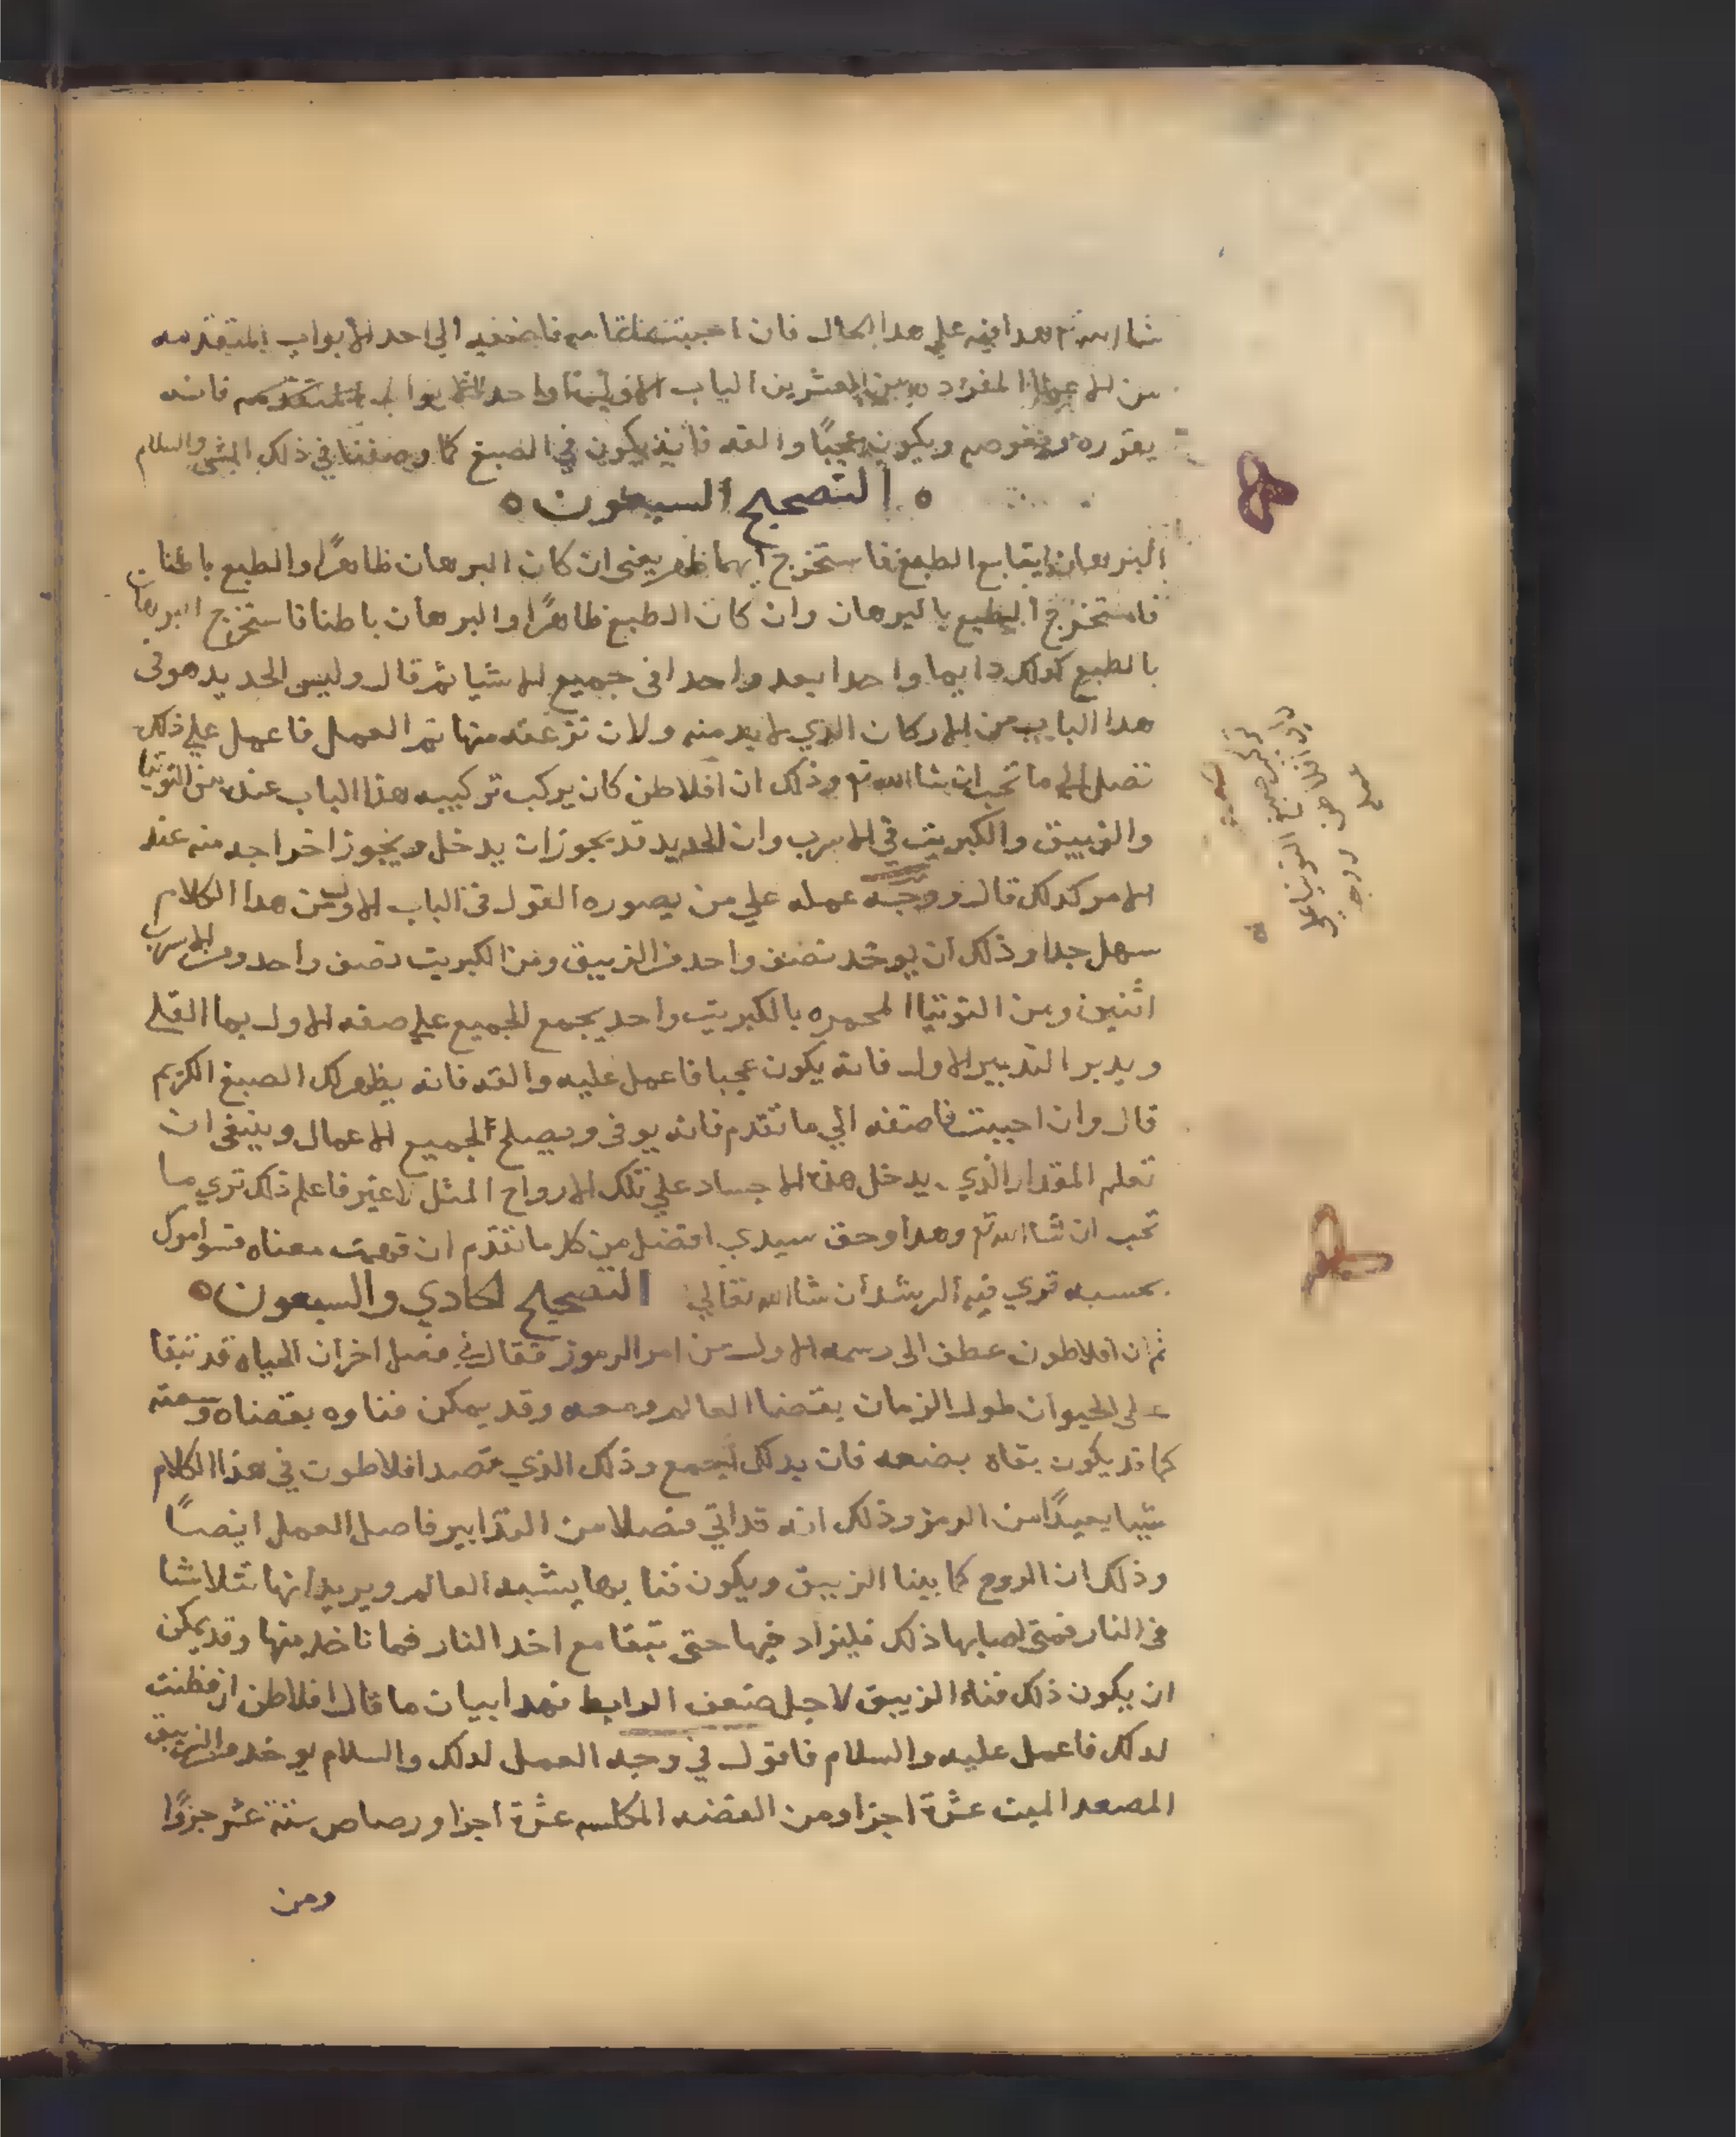 شا الله تع هدا فيه علي هدا الحال فان احببت فاضفه الي احد الابواب المتقدمه
من الاعمال المفرد من العشرين الباب واحد فانه
يقرره ويغوصه ويكون عجبًا والقه فانه يكون في الصبغ كما وصفنا في ذلك والسلام
ه التصحيح السبعون ه
البرهان يتابع الطبع فاستخرج ايهما ظهر يعني ان كان البرهان ظاهرًا والطبع باطنا
فاستخرج الطبع بالبرهان وان كان الطبع ظاهرًا والبرهان باطنا فاستخرج البرهان
بالطبع كدلك دايما واحدا بعد واحدا في جميع الاشيا ثم قال وليس الحديد هو في
هدا الباب من الاركان الذي لابد منه ولان نزعته منها تم العمل فاعمل علي ذلك
تصل الي ما تحب ان شا الله تع وذلك ان افلاطن كان يركب تركيب هذا الباب عنده من التوتيا
والزيبق والكبريت في الاسرب وان الحديد قد يجوز ان يدخل ويجوز اخراجه منه عند
الامر كدلك قال ووجه عمله علي من يصوره القول في الباب الاول من هدا الكلام
سهل جدا وذلك ان يوخد نصف واحد من الزيبق ومن الكبريت نصف واحد ومن الاسرب
اثنين ومن التوتيا المحمره بالكبريت واحد يجمع الجميع علي صفه الاول بما القلي
ويدبر التدبير الاول فانه يكون عجبا فاعمل عليه والقه فانه يظهر لك الصبغ الكريم
قال وان احببت فاضفه الي ما تقدم فانه يوفي ويصلح لجميع الاعمال وينبغي ان
تعلم المقدار الذي يدخل هذه الاجساد علي تلك الارواح المثل لا غير فاعلم ذلك تري ما
تحب ان شا الله تع وهدا وحق سيدي افضل من كل ما تقدم ان فهمت معناه فسو امورك
بحسبه تري فيه الرشد ان شا الله تعالي التصحيح الحادي والسبعون ه
ثم ان افلاطون عطف الي رسمه الاول من امر الرموز فقال في فصل اخر ان المياه قد تبقا
علي الحيوان طول الزمان بقضا العالم ومعه وقد يمكن فناوه بقضاه ومعه
كما قد يكون بقاه بضعه فان بدلك تجمع وذلك الذي قصد افلاطون في هذا الكلام
شيا بعيدًا من الرمز وذلك انه قد اتي فصلا من التدابير فاصل العمل ايضًا
وذلك ان الروح كما بينا الزيبق ويكون فنا بها يشبه العالم ويريد انها تتلاشا
في النار فمتي اصابها ذلك فليزاد فيها حتي تبقا مع اخد النار فما ناخد منها وقد يمكن
ان يكون ذلك فناء الزيبق لاجل ضعف الرابط فهدا بيان ما قال افلاطن ان فطنت
لدلك فاعمل عليه والسلام فاقول في وجه العمل لدلك والسلام يوخد من الزيبق
المصعد الميت عشرة اجزا ومن الفضه المكلسه عشرة اجزا ورصاص ستة عشر جزوًا
ومن